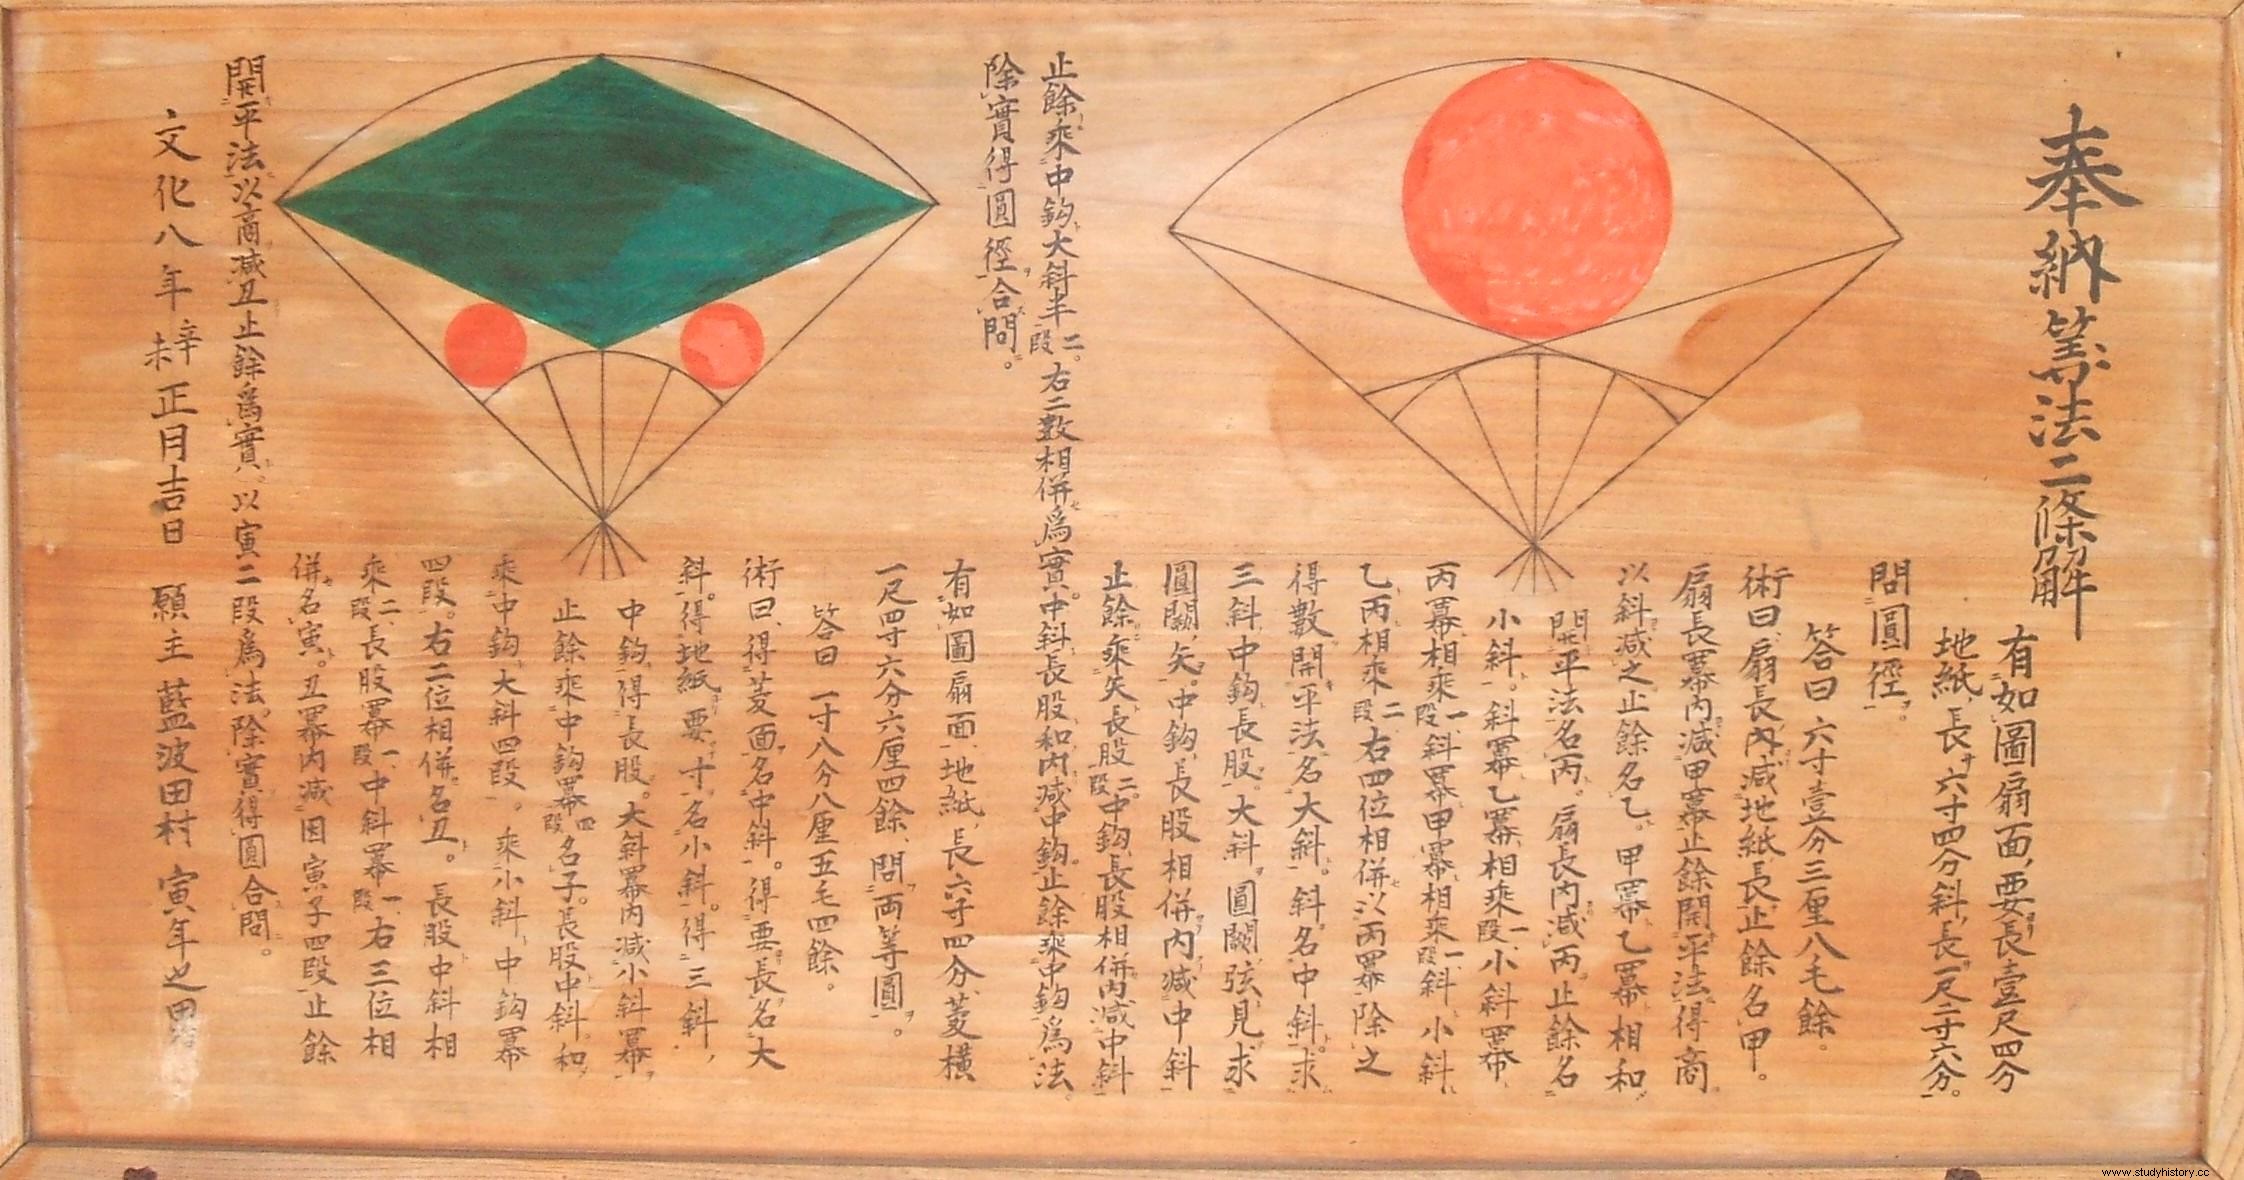 奉納筭法二條解
有如圖扇面要長壹尺四分
地紙長六寸四分斜長一尺二寸六分。
問圓徑。
答曰 六寸壹分三厘八毛餘。
術曰扇長內減地紙長止餘名甲。
扇長冪內減甲冪止餘開平法得商
以斜減之止餘名乙。甲冪乙冪相和
開平法名丙。扇長內減丙。止餘名
小斜。斜冪乙冪相乘一段小斜冪
丙冪相乘一段斜冪甲冪相乘一段斜小斜
乙丙相乘二段右四位相併以丙冪除之
得數開平法名大斜。斜名中斜。求
三斜中鈎長股。大斜圓闕弦見求
圓闕矢。中鈎長股相併內減中斜
止餘乘矢長股二段。中鈎長股相併內減中斜
止餘乘中鈎大斜半二段。右二數相併為實。中斜長股和內減中鈎。止餘乘中鈎為法。
除實得圓徑合問。
有如圖扇面地紙長六寸四分菱橫
一尺四寸六分六厘四餘問両等圓。
答曰 一寸八分八厘五毛四餘。
術曰得菱面名中斜。得要長名大
斜。得地紙要寸名小斜。得三斜
中鈎得長股。大斜冪內減小斜冪
止餘乘中鈎冪四段名子。長股中斜和
乘中鈎大斜四段。乘小斜中鈎冪
四段。右二位相併名丑。長股中斜相
乘二段長股冪一段中斜冪一段右三位相
併名寅。丑冪內減因寅子四段止餘
開平法以商減丑止餘為實以寅二段為法除實得圓合問。
文化八年辛未正月吉日 願主 藍波田村 寅年之男
www.studyhistory.cc